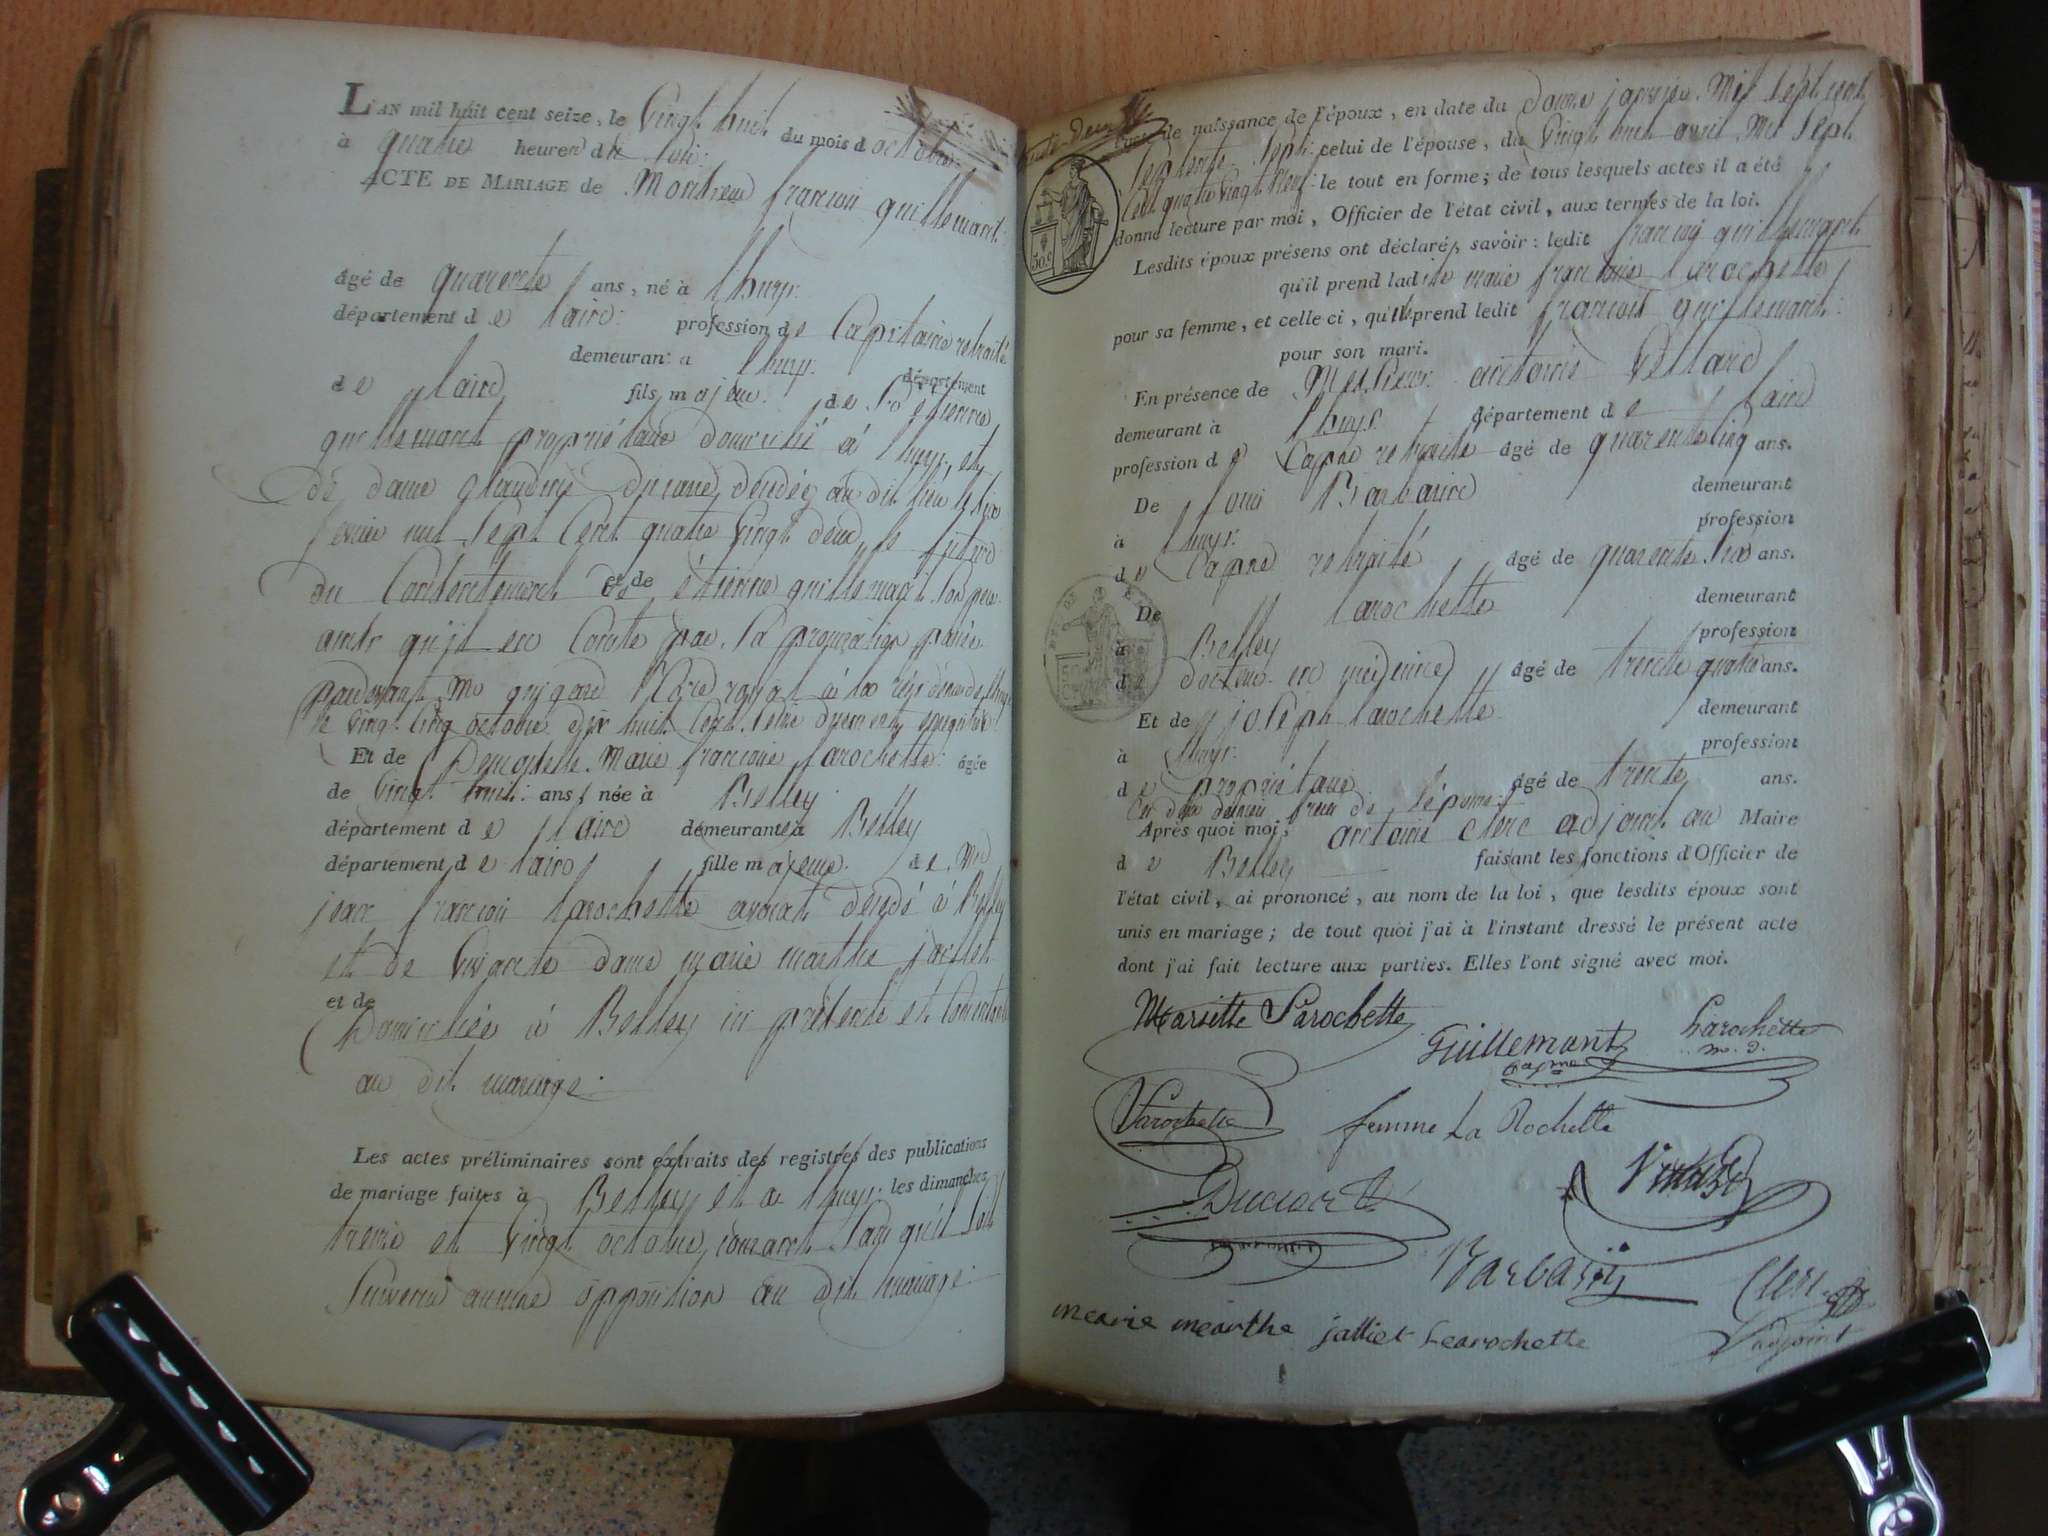 L'AN mil huit cent seize, le Vingt huit du mois d octobre
à quatre heures du soir:
ACTE DE MARIAGE de Monsieur françois guillemant.
âgé de quarente ans, né à lhuys.
département de laind: profession de Capitaine retraité
demeurant à lhuys. département
de laind fils majeur. de Sr etienne
guillemant propriétaire domicilié à lhuys. et
de dame glaudine ducand, décédés au dit lieu le dix
fevrier mil Sept Cent quatre Vingt deux, le futur
du Consentement de étienne guillemant son pere
ainsi qu'il en Conste par Sa procuration passée
pardevant Me guigard Nore royal à la résidence de lhuys
le Vingt Cinq octobre dix huit Cent Seize duement enregistré
Et de Demoiselle Marie françoise Larochette: âgée
de Vingt huit: ans, née à Belley
département de laind demeurante à Belley
département de laind fille majeure. de Mr
jean françois larochette avocat décédé à Belley
et de Vivante dame marie marthe jalliet
et de
Domiciliée à Belley ici présente et Consentante
au dit mariage.
Les actes préliminaires sont extraits des registres des publications
de mariage faites à Belley et à lhuys: les dimanches
treize et Vingt octobre courant Sans qu'il Soit
Survenu aucune opposition au dit mariage.
acte de naissance de l'époux, en date du Douze janvier Mil Sept cent
Septante Sept: celui de l'épouse, du Vingt huit avril Mil Sept
Cent quatre Vingt Neuf: le tout en forme; de tous lesquels actes il a été
donné lecture par moi, Officier de l'état civil, aux termes de la loi.
50c
Lesdits époux présens ont déclaré, savoir: ledit françois guillemant
qu'il prend ladite marie françoise Larochette
pour sa femme, et celle ci, qu'elle prend ledit françois guillemant:
pour son mari.
En présence de Messieurs antoine Vellard
demeurant à lhuys département de laind
profession de Capne retraité âgé de quarente Cinq ans.
De Loui Barbarin demeurant
à lhuys. profession
de Capne retraité âgé de quarente Six ans.
De Larochette demeurant
à Belley profession
de docteur en medecine âgé de trente quatre ans.
Et de joseph Larochette demeurant
à lhuys. profession
de propriétaire âgé de trente ans.
Ces deux derniers freres de l'épouse.
Après quoi moi, antoine Clerc adjoint au Maire
de Belley faisant les fonctions d'Officier de
l'état civil, ai prononcé, au nom de la loi, que lesdits époux sont
unis en mariage; de tout quoi j'ai à l'instant dressé le présent acte
dont j'ai fait lecture aux parties. Elles l'ont signé avec moi.
Mariette Larochette
Guillemant
Capne
Larochette
m. d.
Larochette
femme La Rochette
Barbarin
Clerc
l'adjoint
marie marthe jalliet Learochette